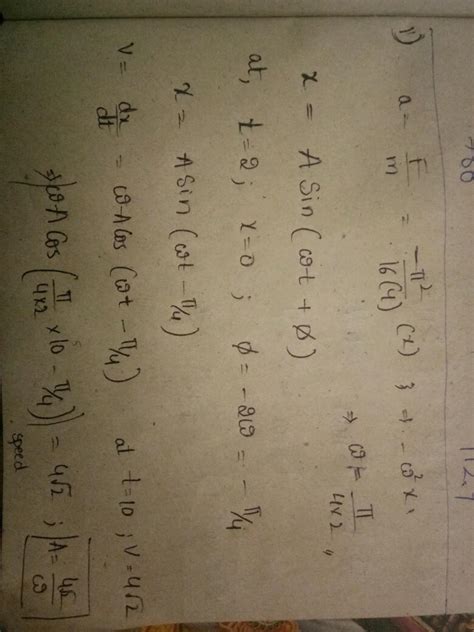 1) a = F/m = -π²/16(4) (x) ; ⇒ -ω²x,
⇒ ω = π/4×2 ,,
x = A Sin(ωt + ø)
at, t=2; x=0; ø = -2ω = -π/4
x = A Sin(ωt - π/4)
v = dx/dt = ωA Cos(ωt - π/4) at t=10; v=4√2
⇒ |ωA Cos(π/4×2 × 10 - π/4)| = 4√2 ; |A = 4√2/ω
speed